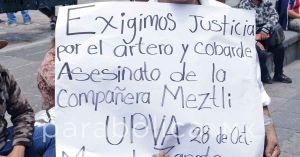 Exigimos Justicia
por el artero y cobarde
Asesinato de la
Compañera Meztli
UPVA 28 de Oct.